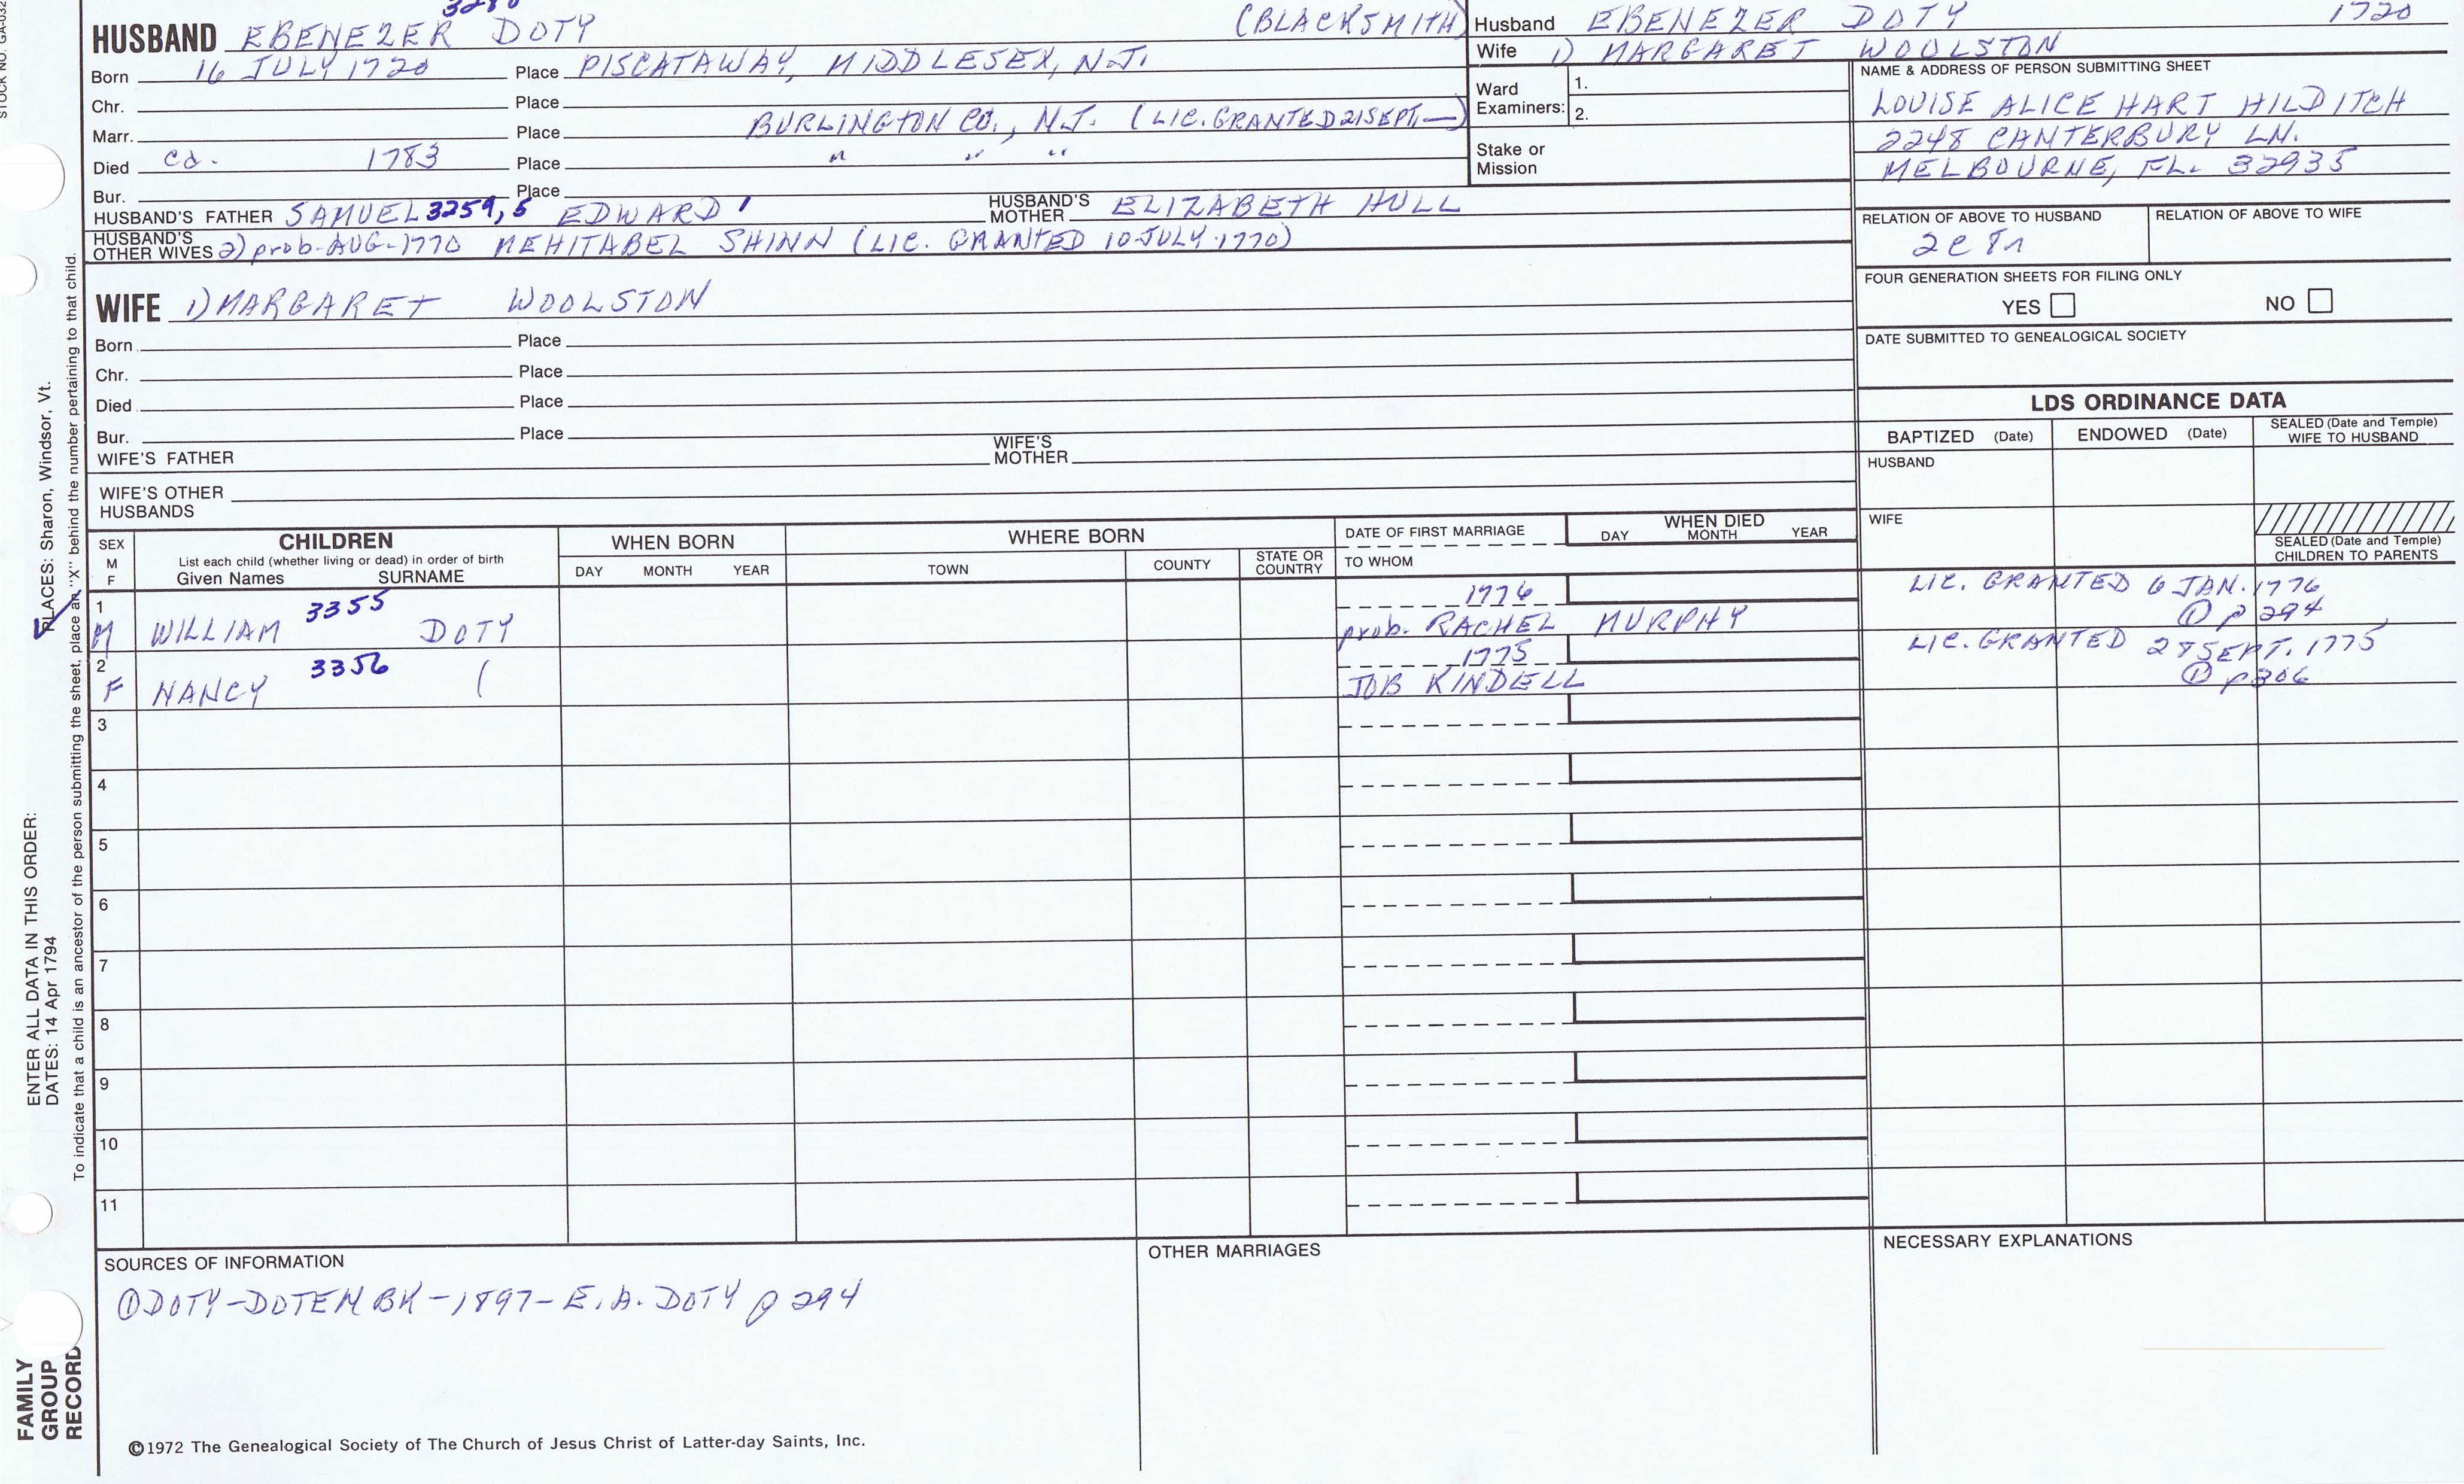 STOCK NO. GA-032
HUSBAND EBENEZER DOTY (BLACKSMITH)
Born 16 JULY 1720 Place PISCATAWAY, MIDDLESEX, N.J.
Chr. Place
Marr. Place BURLINGTON CO., N.J. (LIC. GRANTED 21 SEPT. —)
Died ca. 1783 Place " " "
Bur. Place
HUSBAND'S FATHER SAMUEL 3259, 5 EDWARD 1 HUSBAND'S MOTHER ELIZABETH HULL
HUSBAND'S OTHER WIVES 2) prob. AUG. 1770 MEHITABEL SHINN (LIC. GRANTED 10 JULY 1770)
WIFE 1) MARGARET WOOLSTON
Born Place
Chr. Place
Died Place
Bur. Place
WIFE'S FATHER WIFE'S MOTHER
WIFE'S OTHER HUSBANDS
Husband EBENEZER DOTY 1720
Wife 1) MARGARET WOOLSTON
Ward Examiners: 1. 2.
Stake or Mission
NAME & ADDRESS OF PERSON SUBMITTING SHEET
LOUISE ALICE HART HILDITCH
2248 CANTERBURY LN.
MELBOURNE, FL. 32935
RELATION OF ABOVE TO HUSBAND RELATION OF ABOVE TO WIFE
FOUR GENERATION SHEETS FOR FILING ONLY
YES NO
DATE SUBMITTED TO GENEALOGICAL SOCIETY
LDS ORDINANCE DATA
BAPTIZED (Date) ENDOWED (Date) SEALED (Date and Temple) WIFE TO HUSBAND
HUSBAND
WIFE
SEALED (Date and Temple) CHILDREN TO PARENTS
SEX M F
CHILDREN
List each child (whether living or dead) in order of birth
Given Names SURNAME
WHEN BORN
DAY MONTH YEAR
WHERE BORN
TOWN COUNTY STATE OR COUNTRY
DATE OF FIRST MARRIAGE
TO WHOM
WHEN DIED
DAY MONTH YEAR
1 3355 1776 LIC. GRANTED 6 JAN. 1776
M WILLIAM DOTY prob. RACHEL MURPHY ① p 294
2 3356 1775 LIC. GRANTED 28 SEPT. 1775
F NANCY ( JOB KINDELL ① p306
3
4
5
6
7
8
9
10
11
SOURCES OF INFORMATION
① DOTY-DOTEN BK-1897-E.A. DOTY p 294
OTHER MARRIAGES
NECESSARY EXPLANATIONS
©1972 The Genealogical Society of The Church of Jesus Christ of Latter-day Saints, Inc.
ENTER ALL DATA IN THIS ORDER:
DATES: 14 Apr 1794
PLACES: Sharon, Windsor, Vt.
To indicate that a child is an ancestor of the person submitting the sheet, place an "X" behind the number pertaining to that child.
FAMILY
GROUP
RECORD